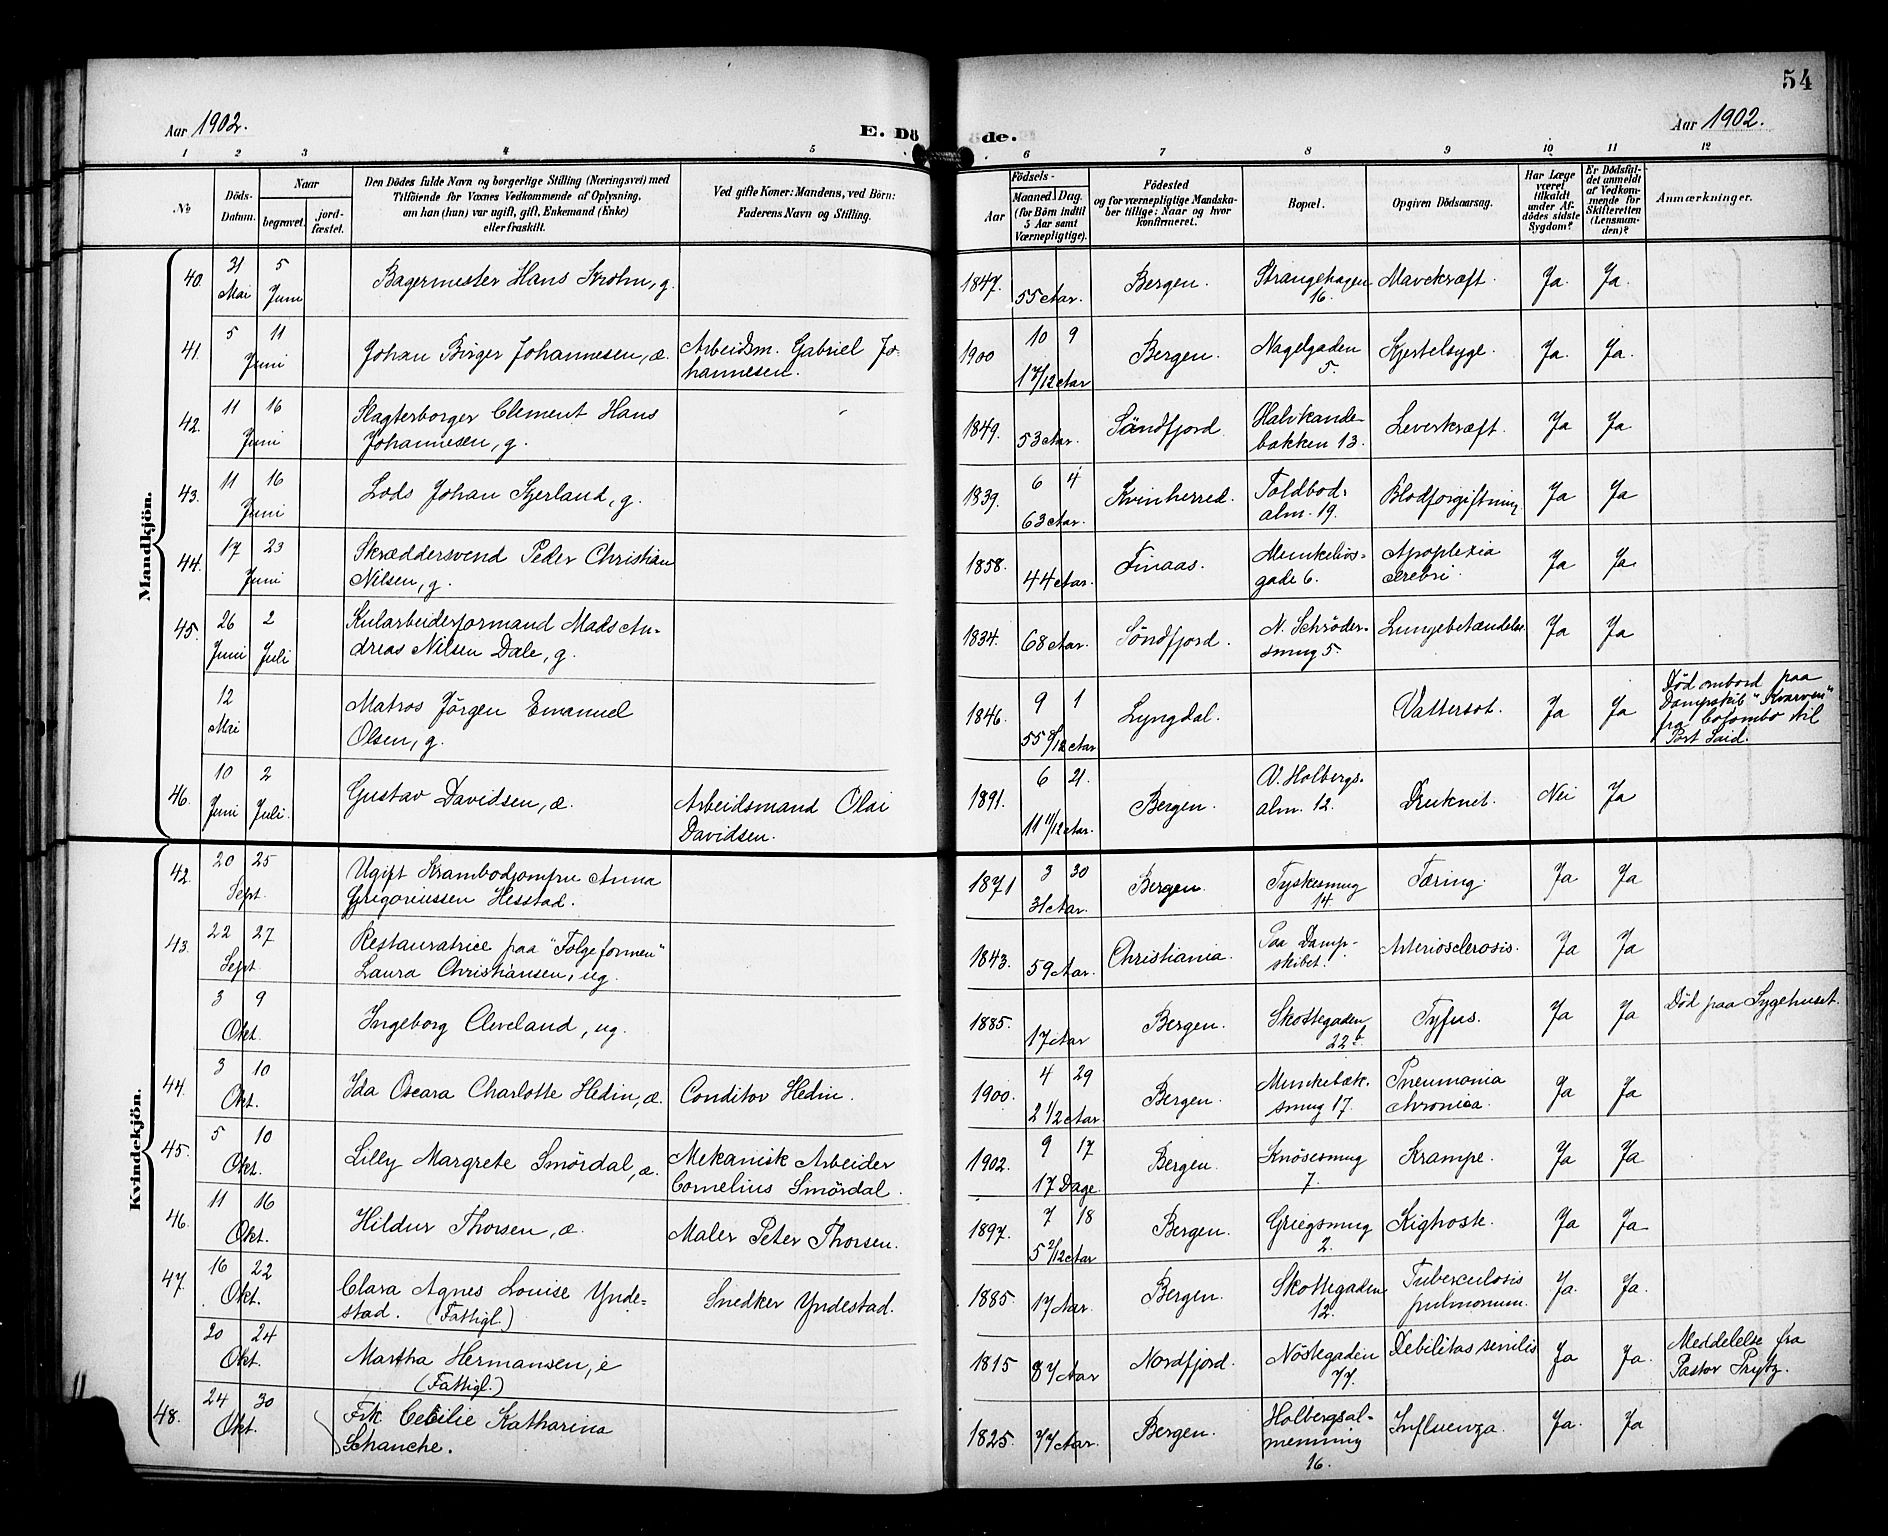 54
Aar 1902.
E. Dö de.
Aar 1902.
1 2 3 4 5 6 7 8 9 10 11 12
No
Döds-Datum.
Naar
begravet.
jord-fæstet.
Den Dödes fulde Navn og borgerlige Stilling (Næringsvei) med
Tilföiende for Voxnes Vedkommende af Oplysning,
om han (hun) var ugift, gift, Enkemand (Enke)
eller fraskilt.
Ved gifte Koner: Mandens, ved Börn:
Faderens Navn og Stilling.
Födsels-
Aar
Maaned. Dag.
(for Börn indtil
5 Aar samt
Værnepligtige).
Födested
og for værnepligtige Mandska-
ber tillige: Naar og hvor
konfirmeret.
Bopæl.
Opgiven Dödsaarsag.
Har Læge
været
tilkaldt
under Af-
dödes sidste
Sygdom?
Er Dödsfal-
det anmeldt
af Vedkom-
mende for
Skifteretten
(Lensman-
den)?
Anmærkninger.
Mandkjön.
40. 31 Mai 5 Juni Bagermester Hans Krohn, g. 1847. 55 Aar. Bergen. Strangehagen 16. Mavekræft. Ja. Ja.
41. 5 11 Juni Johan Birger Johannesen, æ. Arbeidsm. Gabriel Jo-
hannesen. 1900 10 9 1 7/12 Aar Bergen. Nagelgaden 5. Kjertelsyge. Ja. Ja.
42. 11 16 Juni Slagterborger Clement Hans
Johannesen, g. 1849. 53 Aar. Söndfjord Halvkande-
bakken 13. Leverkræft. Ja Ja
43. 11 16 Juni Lods Johan Kjerland, g. 1839. 6 4 63 Aar. Kvinherred. Toldbod-
alm. 19. Blodforgiftning Ja Ja
44. 17 23 Juni Skræddersvend Peder Christian
Nilsen, g. 1858. 44 Aar. Finaas. Munkelivs-
gade 6. Apoplexia
cerebri. Ja Ja
45. 26 Juni 2 Juli Kularbeiderformand Mads An-
dreas Nilsen Dale, g. 1834. 68 Aar. Söndfjord. N. Schröder-
smug 5. Lungebetændelse Ja Ja
12 Mai Matros Jörgen Emanuel
Olsen, g. 1846. 9 1 55 8/12 Aar Lyngdal. Vattersot. Ja Ja Död ombord paa
Dampskib "Kvarven"
fra Colombo til
Port Said.
46. 10 Juni 2 Juli. Gustav Davidsen, æ. Arbeidsmand Olai
Davidsen. 1891. 6 21. 11 11/12 Aar. Bergen. V. Holbergs-
alm. 12. Druknet. Nei Ja
Kvindekjön.
42. 20 25 Sept. Ugift Krambodjomfru Anna
Grigoriussen Hesstad. 1871 3 30 31 Aar. Bergen. Tyskesmug
14. Tæring. Ja Ja
43. 22 27 Sept. Restauratrice paa "Folgefonnen"
Laura Christiansen, ug. 1843. 59 Aar. Christiania. Paa Damp-
skibet. Arteriosclerosis. Ja Ja
3 9 Okt. Ingeborg Cleveland, ug. 1885. 17 Aar Bergen. Skottegaden
22 b. Tyfus. Ja Ja Död paa Sygehuset.
44. 3 10 Okt. Ida Oscara Charlotte Hedin, æ. Conditor Hedin. 1900. 4 29 2 1/2 Aar Bergen. Munkebæk-
smug 17. Pneumonia
chronica. Ja Ja
45. 5 10 Okt. Lilly Margrete Smördal, æ. Mekanisk Arbeider
Cornelius Smördal. 1902. 9 17 17 Dage. Bergen. Knösesmug
7. Krampe. Ja Ja
46. 11 16 Okt. Hildur Thorsen, æ. Maler Peter Thorsen. 1897. 7 18 5 2/12 Aar Bergen. Griegsmug
2. Kighoste. Ja Ja
47. 16 22 Okt. Clara Agnes Louise Ynde-
stad. (Fattigl.) Snedker Yndestad. 1885. 17 Aar. Bergen. Skottegaden
12. Tuberculosis
pulmonum. Ja. Ja.
20 24 Okt. Martha Hermansen, e
(Fattigl.) 1815 87 Aar Nordfjord. Nöstegaden
77. Debilitas senilis Ja Ja. Meddelelse fra
Pastor Prytz.
48. 24 30 Okt. Frk Cecilie Katharina
Schanche. 1825. 77 Aar. Bergen. Holbergsal-
menning
16. Influenza. Ja. Ja